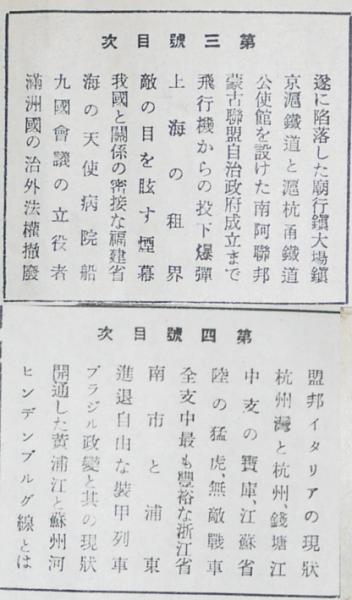 第三號目次
遂に陷落した廟行鎭大場鎭
京滬鐵道と滬杭甬鐵道
公使館を設けた南阿聯邦
蒙古聯盟自治政府成立まで
飛行機からの投下爆彈
上海の租界
敵の目を眩す煙幕
我國と關係の密接な福建省
海の天使病院船
九國會議の立役者
滿洲國の治外法權撤廢
第四號目次
盟邦イタリアの現狀
杭州灣と杭州、錢塘江
中支の寶庫、江蘇省
陸の猛虎、無敵戰車
全支中最も豐裕な浙江省
南市と浦東
進退自由な裝甲列車
ブラジル政變と其の現狀
開通した黃浦江と蘇州河
ヒンデンブルグ線とは